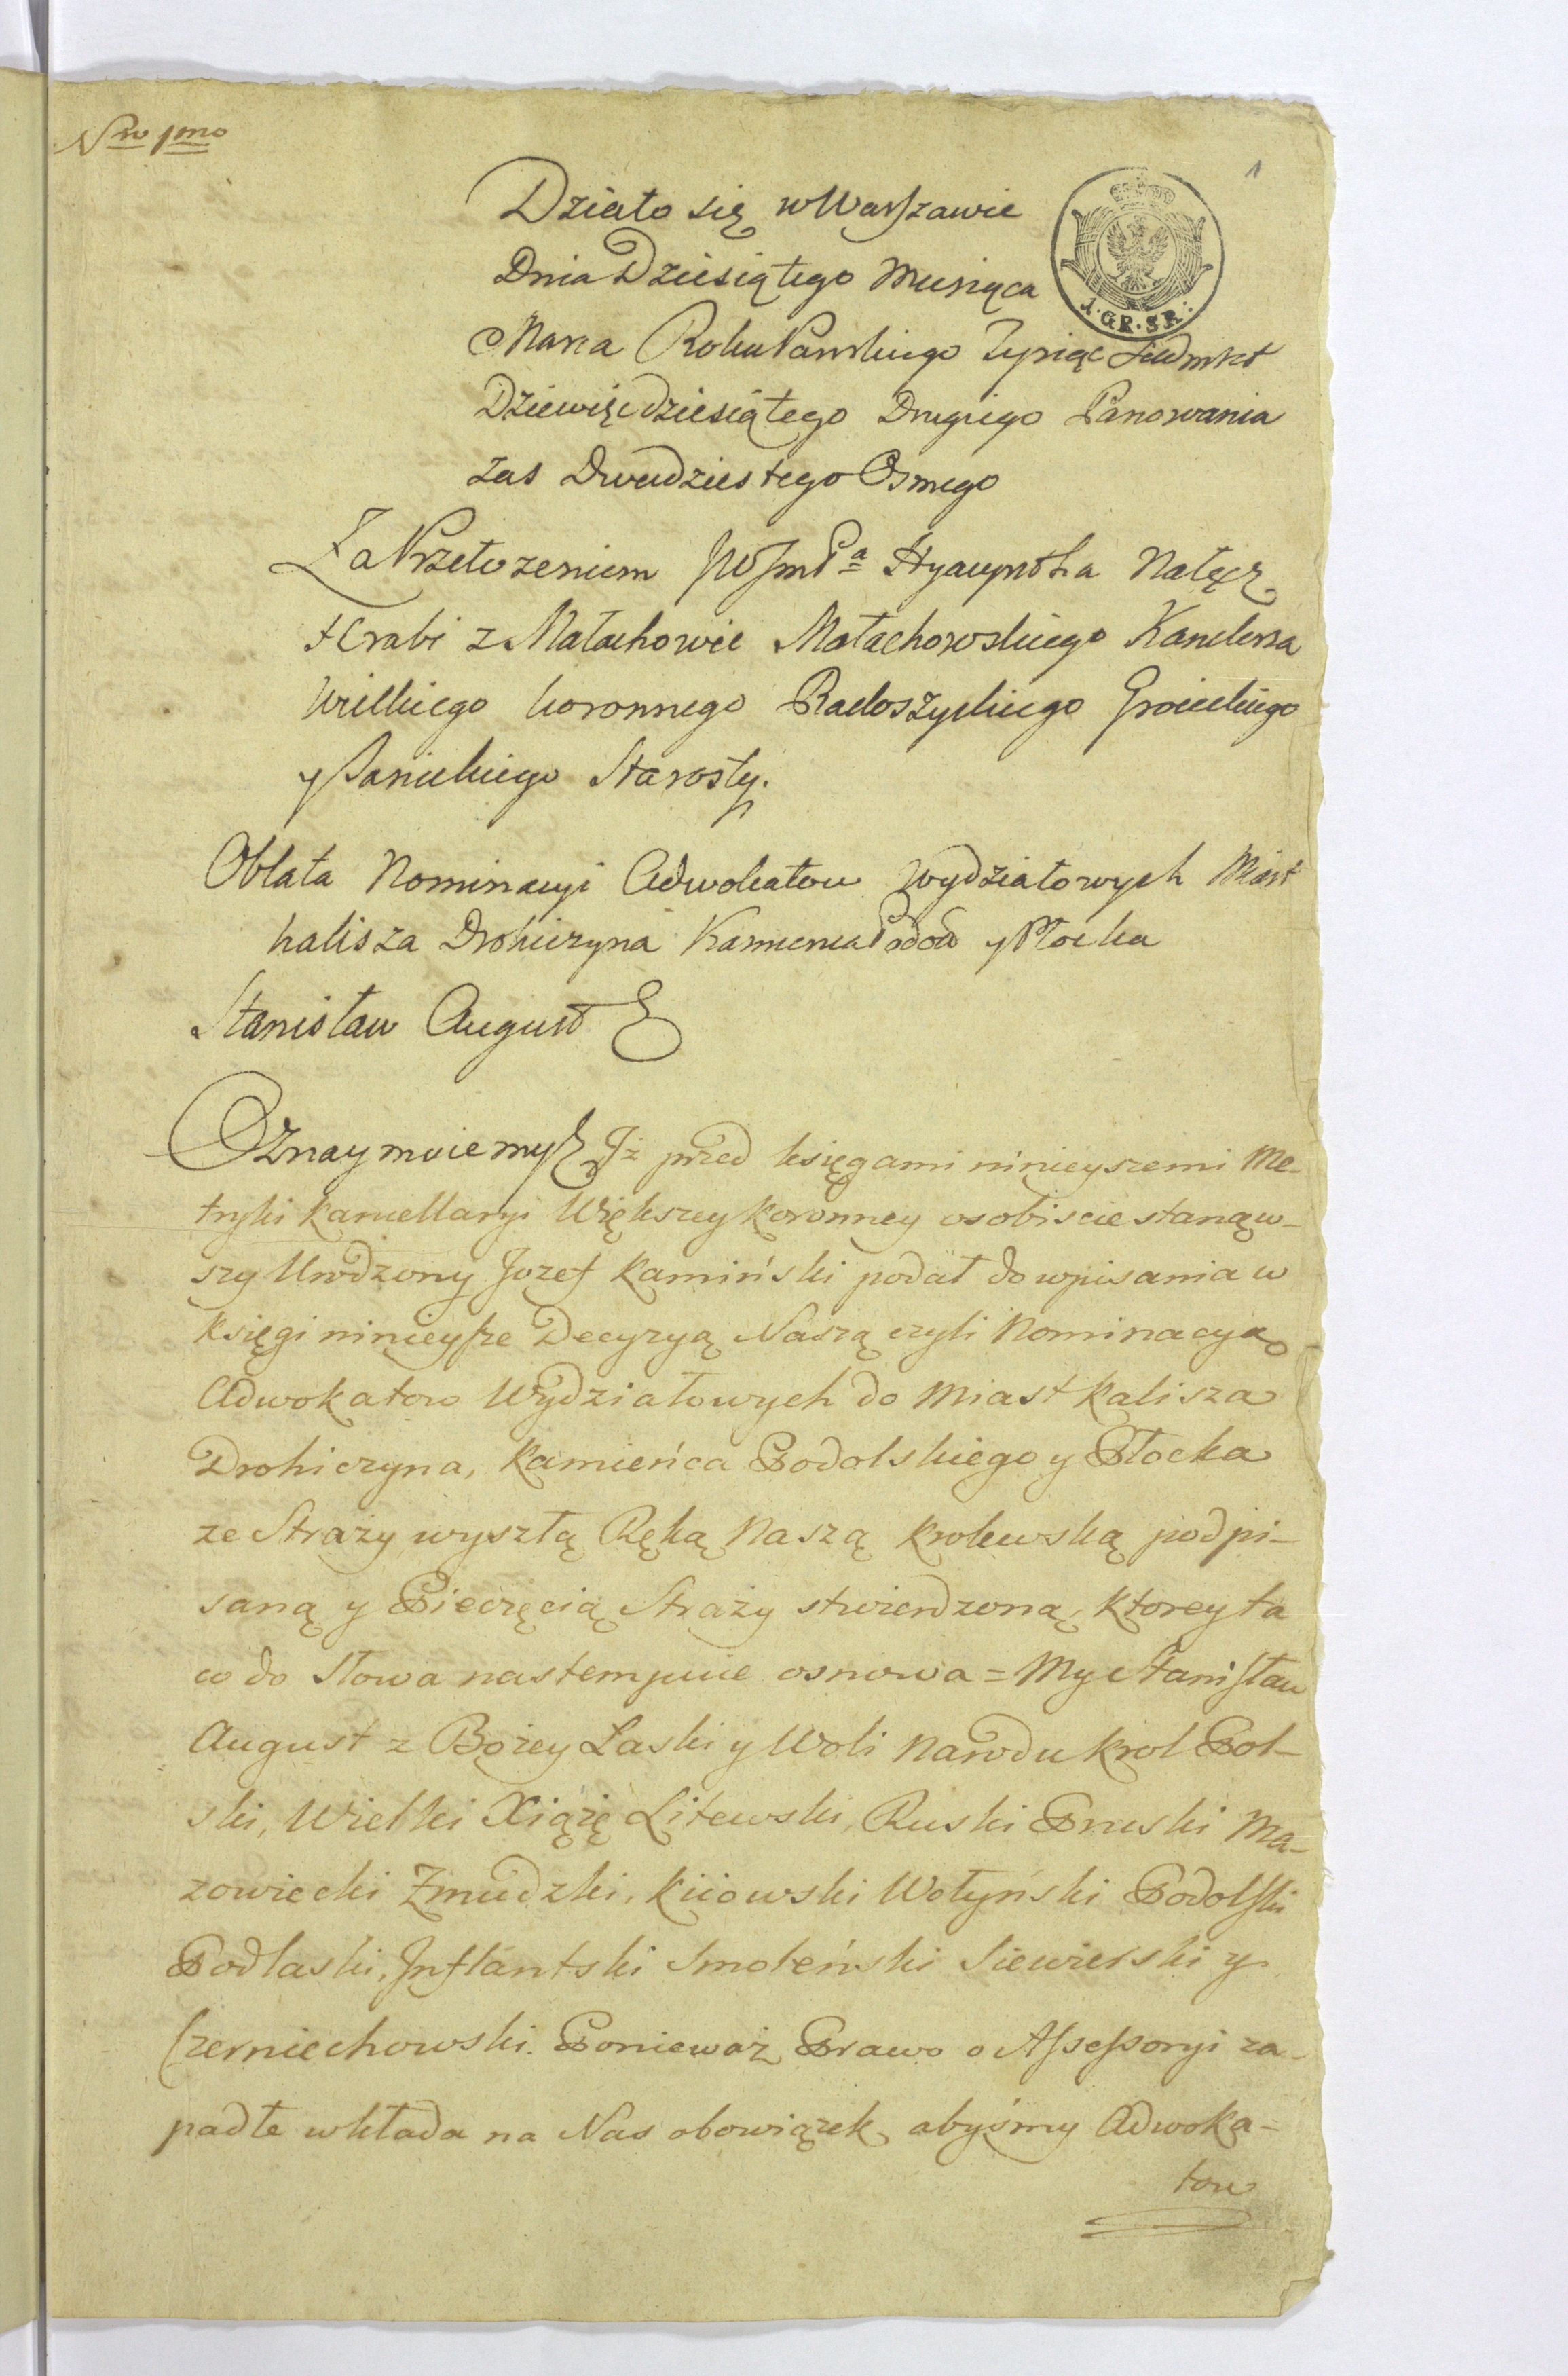 Nro 1mo
1
Działo się w Warszawie
Dnia Dziesiątego Miesiąca
1·GR·SR·
Marca Roku Pańskiego Tysiąc Siedmset
Dziewięćdziesiątego Drugiego Panowania
zas Dwudziestego Osmego
Za Przełożeniem JWJmPa Hyacyntha Nałęcz
Hrabi z Małachowic Małachowskiego Kanclerza
Wielkiego koronnego Radoszyckiego Groieckiego
y Starosty.
Oblata Nominacyi Adwokatow Wydziałowych Miast
kalisza Drohiczyna Kamienca Podol y Płocka
Stanisław August
Oznaymuiemy Jż przed księgami ninieyszemi Me-
tryki Kancellaryi Większey Koronney osobiscie stanąw-
szy Urodzony Jozef Kamiński podał do wpisania w
Księgi ninieysze Decyzyą Naszą czyli Nominacyą
Adwokatow Wydziałowych do Miast Kalisza
Drohiczyna, Kamieńca Podolskiego y Płocka
ze Straży wyszłą Ręką Naszą Krolewską podpi-
saną y Pieczęcią Straży stwierdzoną, Ktorey ta
co do słowa nastempuie osnowa = My Stanisław
August z Bożey Laski y Woli Narodu Krol Pol-
ski, Wielki Xiąże Litewski, Ruski Pruski Ma-
zowiecki Żmudzki, Kiiowski Wołyński Podolski
Podlaski, Jnflantski Smoleński Siewierski y
Czerniechowski. Ponieważ Prawo o Assessoryi za-
padłe wkłada na Nas obowiązek, abyśmy Adwoka-
tow